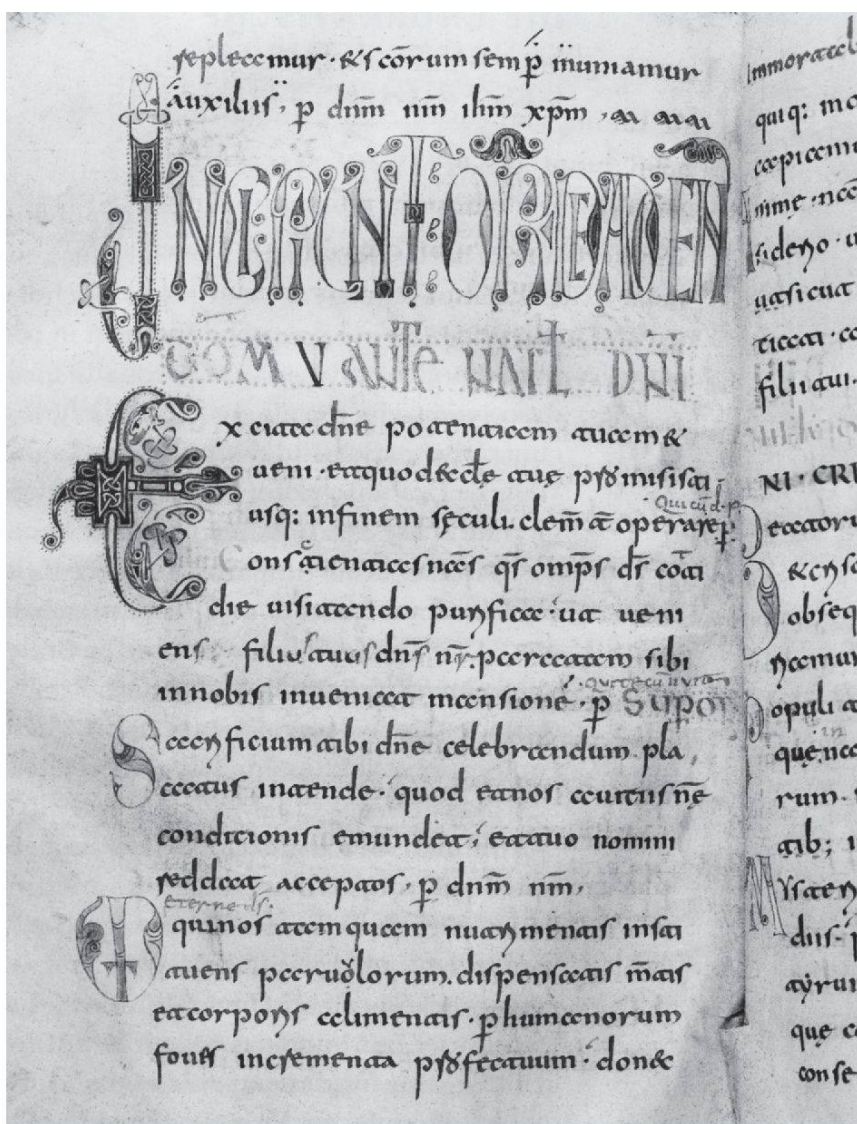 repleamur · & scōrum semp̄ muniamur
auxiliis, p̄ dnm̄ nm̄ ihm̄ xpm̄,
INCIPIUNT OR DE ADUEN̄
DOM V ANTE NAT̄ DN̄I
Excita dn̄e potentiam tuam &
ueni · et quod eccl̄e tuę promisisti ·
usq: in finem sęculi. clem̄t operare p̄
Qui cū d. p
Conscientias nr̄as qs̄ omp̄s ds̄ coti
die uisitando purifica · ut ueni
ens filius tuus dn̄s nr̄. paratam sibi
in nobis inueniat mansione · p̄ SUPOB
Sacrificium tibi dn̄e celebrandum pla,
catus intende · quod et nos a uitiis nr̄ę
conditionis emundet; et tuo nomini
reddat acceptos, p̄ dnm̄ nm̄,
eterne ds.
VD qui nos tamquam nutrimentis insti
tuens paruolorum. dispensatis m̄tis
et corporis alimentis · p̄ humanorum
foues incrementa profectuum · don&
quiq: mo
sidero · u
filii tui.
NI · CRE
obseq
opuli
rum ·
tib; i
dius ·
conse